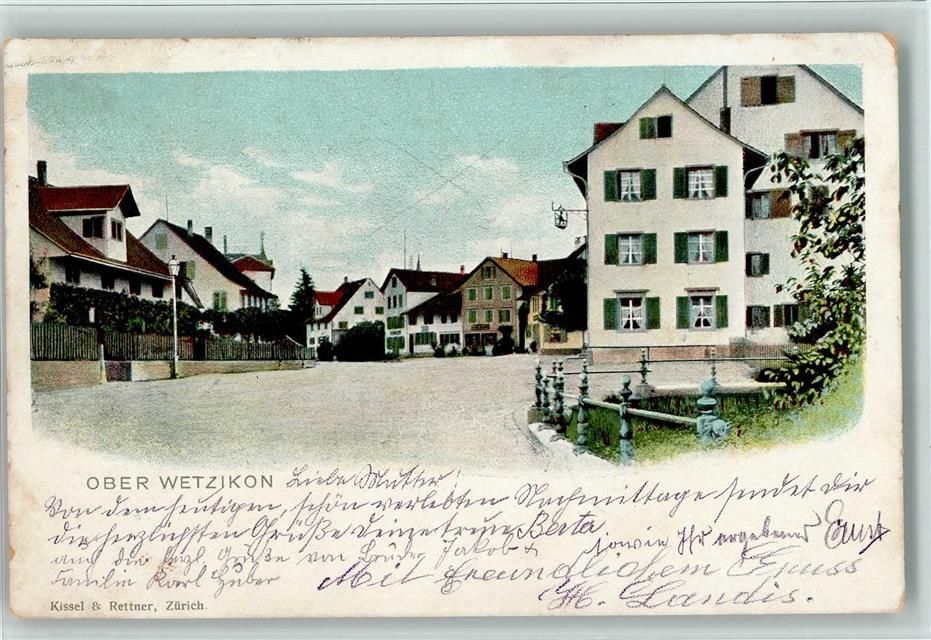 OBER WETZIKON Liebe Mutter!
Von dem heutigen, schön verlebten Nachmittage sendet Dir
die herzlichsten Grüße Deine treue Berta
auch die herzl. Grüße von Jakob & sowie Ihr ergebener Ernst
Familie Karl Huber
Mit freundlichem Gruss
H. Landis.
Kissel & Rettner, Zürich.